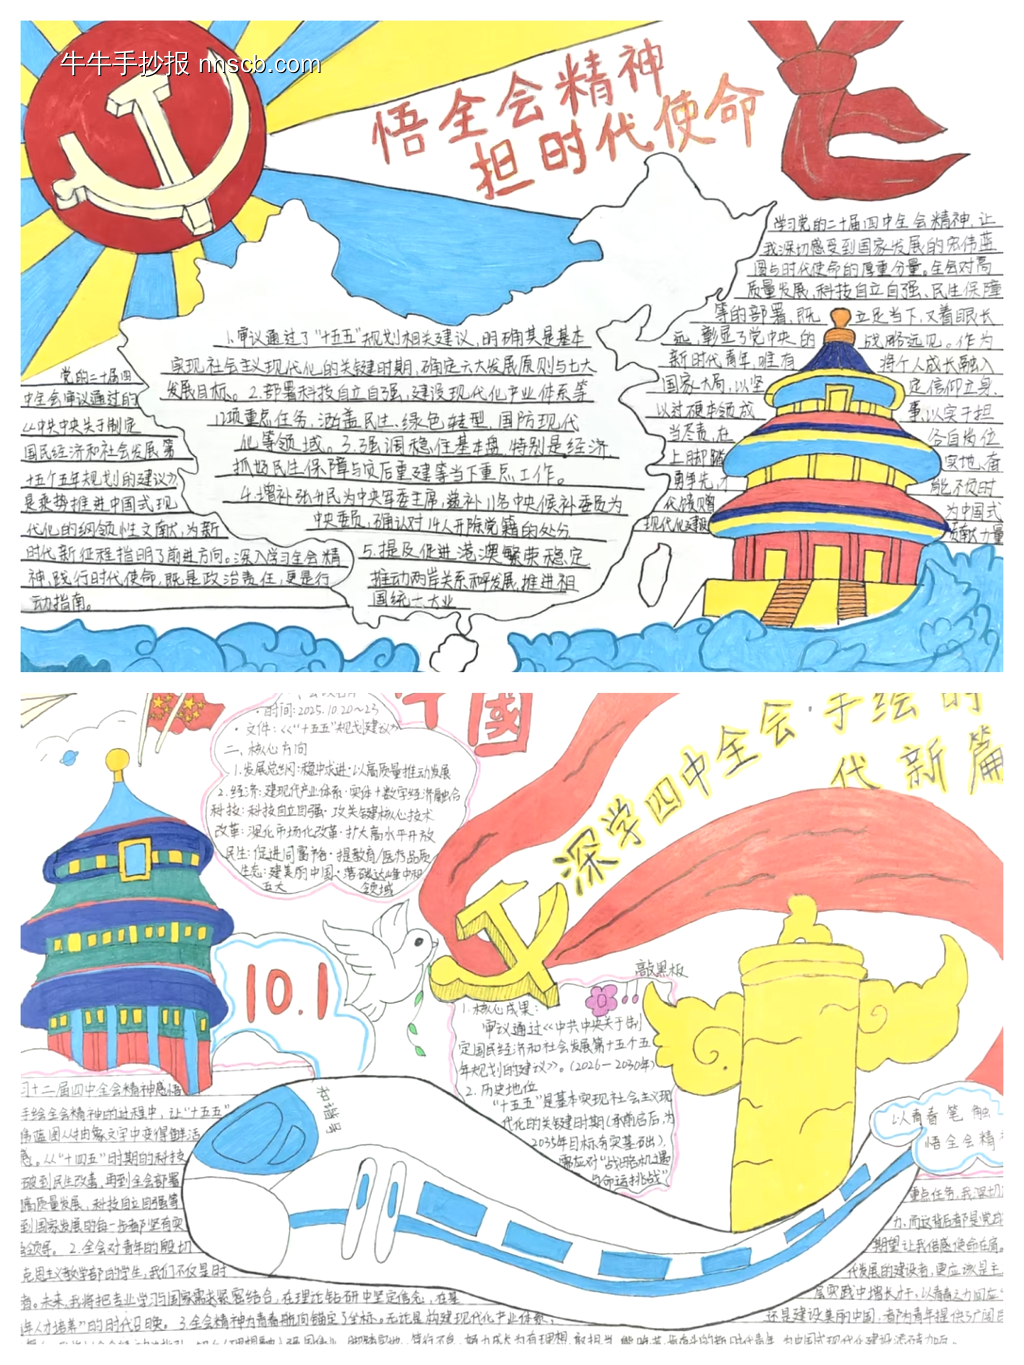 牛牛手抄报 nnscb.com
悟全会精神
担时代使命
学习党的二十届四中全会精神，让
我深切感受到国家发展的宏伟蓝
图与时代使命的厚重分量。全会对高
质量发展、科技自立自强、民生保障
等的部署，既立足当下，又着眼长
远，彰显了党中央的战略远见。作为
新时代青年，唯有将个人成长融入
国家大局，以坚定信仰立身，
以过硬本领成事，以实干担
当尽责，在各自岗位
上脚踏实地、奋
勇争先，才能不负时
代馈赠为中国式
现代化建设贡献力量
1.审议通过了“十五五”规划相关建议，明确其是基本
实现社会主义现代化的关键时期，确定六大发展原则与七大
发展目标。2.部署科技自立自强、建设现代化产业体系等
12项重点任务，涵盖民生、绿色转型、国防现代
化等领域。3.强调稳住基本盘，特别是经济
抓好民生保障与灾后重建等当下重点工作。
4.增补张升民为中央军委主席，递补11名中央候补委员为
中央委员，确认对14人开除党籍的处分
5.提及促进港澳繁荣稳定
推动两岸关系和平发展，推进祖
国统一大业
党的二十届四
中全会审议通过的
《中共中央关于制定
国民经济和社会发展第
十五个五年规划的建议》
是乘势推进中国式现
代化的纲领性文献，为新
时代新征程指明了前进方向。深入学习全会精
神，践行时代使命，既是政治责任，更是行
动指南。
中國
·时间：2025.10.20~23
·文件：《“十五五”规划建议》
二、核心方向
1.发展总纲：稳中求进·以高质量推动发展
2.经济：建现代产业体系·实体+数字经济融合
科技：科技自立自强·攻关键核心技术
改革：深化市场化改革·扩大高水平开放
民生：促进共同富裕·提教育/医疗品质
生态：建美丽中国·落碳达峰中和
五大领域
深学四中全会·手绘时
代新篇
10.1
敲黑板
1.核心成果：
审议通过《中共中央关于制
定国民经济和社会发展第十五个五
年规划的建议》。(2026—2030年)
2.历史地位
“十五五”是基本实现社会主义现
代化的关键时期(承前启后，为
2035年目标夯实基础)，
需应对“战略机遇
与命运挑战”
和谐号
以青春笔触
悟全会精神
习十二届四中全会精神感悟
手绘全会精神的过程中，让“十五五”
伟蓝图从抽象文字中变得鲜活
。从“十四五”时期的科技
破到民生改善，再到全会部署
高质量发展、科技自立自强等
到国家发展的每一步都坚实
领导。2.全会对青年的殷切
克思主义教学部的学生，我们不仅是时
者。未来，我将把专业学习与国家需求紧密结合，在理论钻研中坚定信念，在基
年人才培养”的时代召唤。3.全会精神为青春航向锚定了坐标。无论是构建现代化产业体系，
重点任务，我深切
力，而这背后都是党
期望让我倍感使命在肩。
代发展的建设者，更应该是主
层实践中增长才干，以青春之力回应
还是建设美丽中国，都为青年提供了广阔